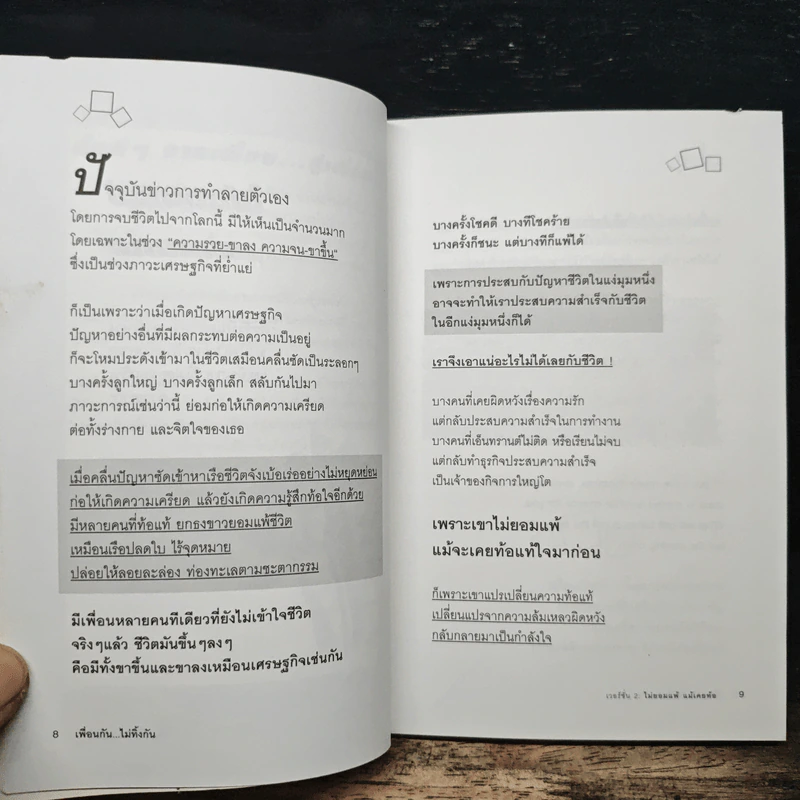 ปัจจุบันข่าวการทำลายตัวเอง
โดยการจบชีวิตไปจากโลกนี้ มีให้เห็นเป็นจำนวนมาก
โดยเฉพาะในช่วง "ความรวย-ขาลง ความจน-ขาขึ้น"
ซึ่งเป็นช่วงภาวะเศรษฐกิจที่ย่ำแย่
ก็เป็นเพราะว่าเมื่อเกิดปัญหาเศรษฐกิจ
ปัญหาอย่างอื่นที่มีผลกระทบต่อความเป็นอยู่
ก็จะโหมประดังเข้ามาในชีวิตเสมือนคลื่นซัดเป็นระลอกๆ
บางครั้งลูกใหญ่ บางครั้งลูกเล็ก สลับกันไปมา
ภาวะการณ์เช่นว่านี้ ย่อมก่อให้เกิดความเครียด
ต่อทั้งร่างกาย และจิตใจของเธอ
เมื่อคลื่นปัญหาซัดเข้าหาเรือชีวิตจังเบ้อเร่ออย่างไม่หยุดหย่อน
ก่อให้เกิดความเครียด แล้วยังเกิดความรู้สึกท้อใจอีกด้วย
มีหลายคนที่ท้อแท้ ยกธงขาวยอมแพ้ชีวิต
เหมือนเรือปลดใบ ไร้จุดหมาย
ปล่อยให้ลอยละล่อง ท่องทะเลตามชะตากรรม
มีเพื่อนหลายคนทีเดียวที่ยังไม่เข้าใจชีวิต
จริงๆแล้ว ชีวิตมันขึ้นๆลงๆ
คือมีทั้งขาขึ้นและขาลงเหมือนเศรษฐกิจเช่นกัน
8 เพื่อนกัน...ไม่ทิ้งกัน
บางครั้งโชคดี บางทีโชคร้าย
บางครั้งก็ชนะ แต่บางทีก็แพ้ได้
เพราะการประสบกับปัญหาชีวิตในแง่มุมหนึ่ง
อาจจะทำให้เราประสบความสำเร็จกับชีวิต
ในอีกแง่มุมหนึ่งก็ได้
เราจึงเอาแน่อะไรไม่ได้เลยกับชีวิต !
บางคนที่เคยผิดหวังเรื่องความรัก
แต่กลับประสบความสำเร็จในการทำงาน
บางคนที่เอ็นทรานต์ไม่ติด หรือเรียนไม่จบ
แต่กลับทำธุรกิจประสบความสำเร็จ
เป็นเจ้าของกิจการใหญ่โต
เพราะเขาไม่ยอมแพ้
แม้จะเคยท้อแท้ใจมาก่อน
ก็เพราะเขาแปรเปลี่ยนความท้อแท้
เปลี่ยนแปรจากความล้มเหลวผิดหวัง
กลับกลายมาเป็นกำลังใจ
เวอร์ชั่น 2: ไม่ยอมแพ้ แม้เคยท้อ 9